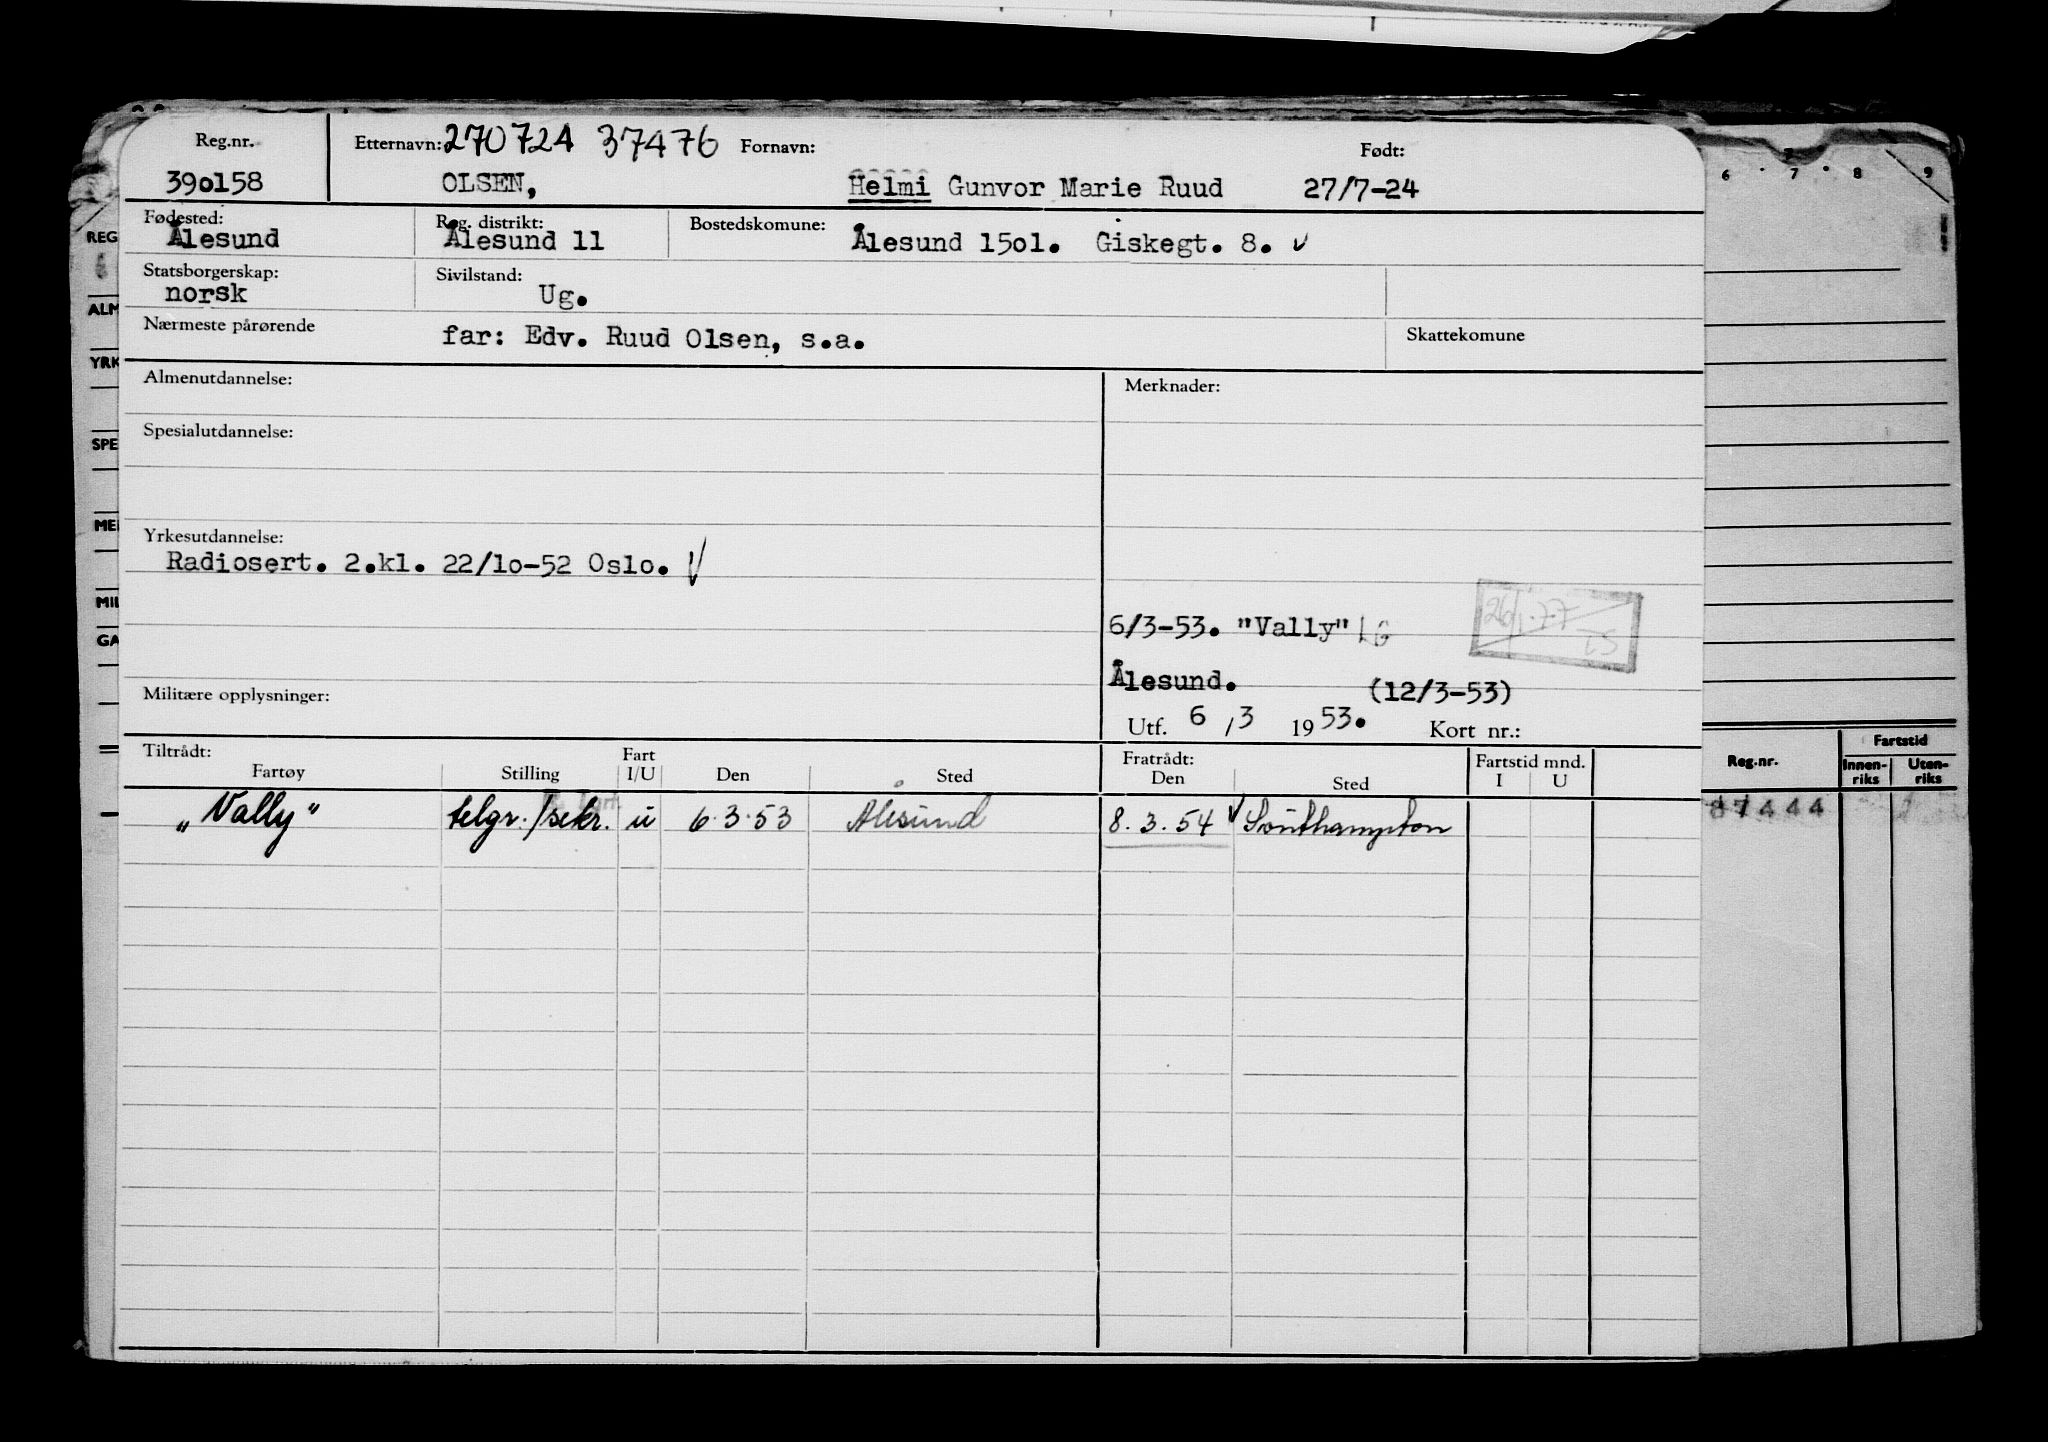 Reg.nr. Etternavn: 270724 37476 Fornavn: Født:
39o158 OLSEN, Helmi Gunvor Marie Ruud 27/7-24
Fødested: Reg. distrikt: Bostedskomune:
Ålesund Ålesund 11 Ålesund 15o1. Giskegt. 8. v
Statsborgerskap: Sivilstand:
norsk Ug.
Nærmeste pårørende far: Edv. Ruud Olsen, s.a. Skattekomune
Almenutdannelse: Merknader:
Spesialutdannelse:
Yrkesutdannelse:
Radiosert. 2.kl. 22/1o-52 Oslo. V
26/1.77
6/3-53. "Vally" LG
Ålesund. (12/3-53)
Militære opplysninger:
Utf. 6 / 3 1953. Kort nr.:
Tiltrådt: Fart Fratrådt: Fartstid mnd.
Fartøy Stilling I/U Den Sted Den Sted I U
„Vally" telgr./sekr. u 6.3.53 Ålesund 8.3.54 V Southampton
6 7 8 9
REG
ALM
YRK
SPE
MEI
MIL
GA
Reg.nr. Fartstid
Innen-riks Uten-riks
87444